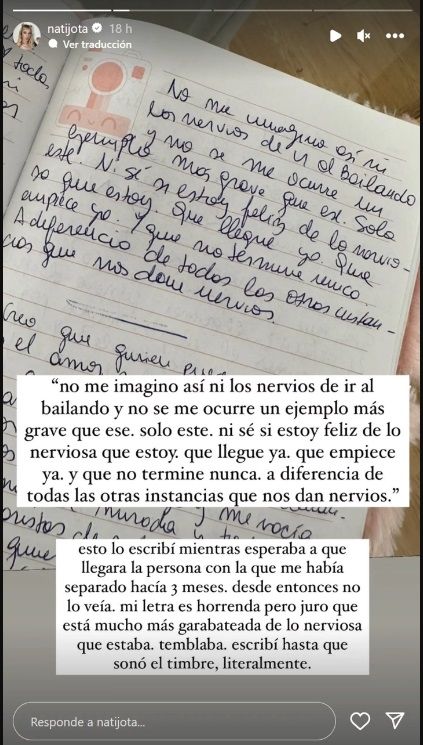 natijota 18 h
Ver traducción
todas
No me imagino así ni
los nervios de ir al Bailando
y no se me ocurre un
ejemplo más grave que ese. Solo
este. Ni sé si estoy feliz de lo nervio-
sa que estoy. Que llegue ya. Que
empiece ya. Y que no termine nunca.
A diferencia de todas las otras instan-
cias que nos dan nervios.
Creo que quien
el amor
"no me imagino así ni los nervios de ir al
bailando y no se me ocurre un ejemplo más
grave que ese. solo este. ni sé si estoy feliz de lo
nerviosa que estoy. que llegue ya. que empiece
ya. y que no termine nunca. a diferencia de
todas las otras instancias que nos dan nervios."
y me
que
esto lo escribí mientras esperaba a que
llegara la persona con la que me había
separado hacía 3 meses. desde entonces no
lo veía. mi letra es horrenda pero juro que
está mucho más garabateada de lo nerviosa
que estaba. temblaba. escribí hasta que
sonó el timbre, literalmente.
Responde a natijota...